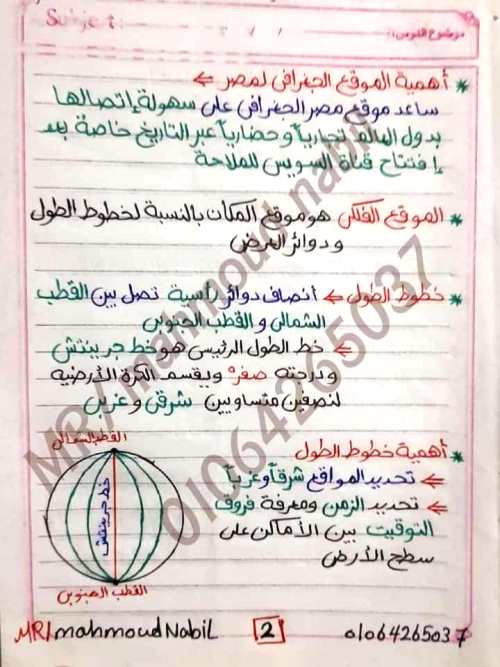 Subject:
موضوع الدرس:
* أهمية الموقع الجغرافى لمصر ⇐
ساعد موقع مصر الجغرافى على سهولة إتصالها
بدول العالم تجارياً وحضارياً عبر التاريخ خاصة بعد
إفتتاح قناة السويس للملاحة
* الموقع الفلكى هو موقع المكان بالنسبة لخطوط الطول
ودوائر العرض
* خطوط الطول ⇐ أنصاف دوائر رأسية تصل بين القطب
الشمالى والقطب الجنوبى
⇐ خط الطول الرئيسى هو خط جرينتش
ودرجته صفر° ويقسم الكرة الأرضية
لنصفين متساويين شرقى وغربى
* أهمية خطوط الطول
⇐ تحديد المواقع شرقاً وغرباً
⇐ تحديد الزمن ومعرفة فروق
التوقيت بين الأماكن على
سطح الأرض
القطب الشمالى
خط جرينتش
القطب الجنوبى
MR/mahmoud Nabil
2
01064265037
MR/ mahmoud nabil
01064265037